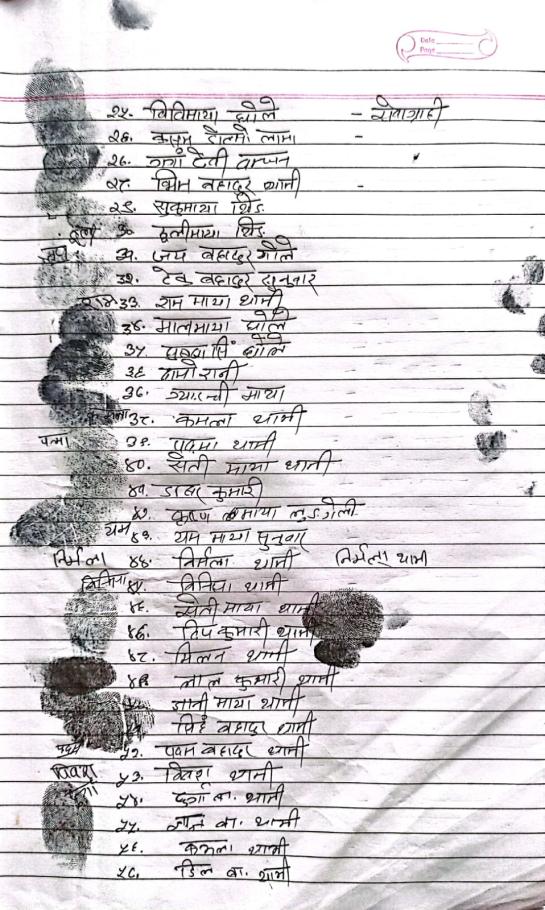 Date
Page
२५. विविमाया घोले - सेवाग्राही
२६. कुसुम डोल्मो लामा -
२७. गंगा देवी
२८. भिम बहादुर थामी -
२९. सुकुमाया थिङ
३०. ठूलीमाया थिङ
३१. जय बहादुर गोले
३२. टेक बहादुर दनुवार
राम ३३. राम माया थामी
३४. मालमाया घोले
३५. घोले
३६. रानी
३७. माया
कमला ३८. कमला थामी
पदमा ३९. पदमा थामी
४०. सेती माया थामी
४१. कुमारी
४२. कृष्ण माया
यम ४३. यम माया सुनुवार
निर्मला ४४. निर्मला थामी निर्मला थामी
विनिता ४५. थामी
४६. सेती माया थामी
४७. दिप कुमारी थामी
४८. मिलन थामी
४९. लाल कुमारी थामी
५०. माया थामी
५१. सिंह बहादुर थामी
पदम ५२. पदम बहादुर थामी
विवश ५३. विवश थामी
दुर्गा ५४. दुर्गा ब. थामी
५५. ब. थामी
५६. कमला थामी
५७. डिल ब. थामी